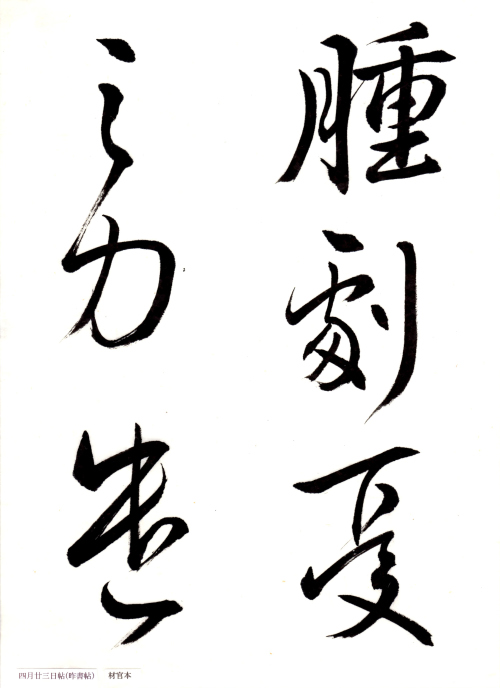 腫劇憂
之力遣
四月廿三日帖(昨書帖) 材官本